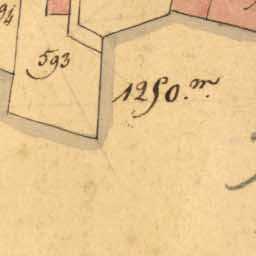 593
1250.m